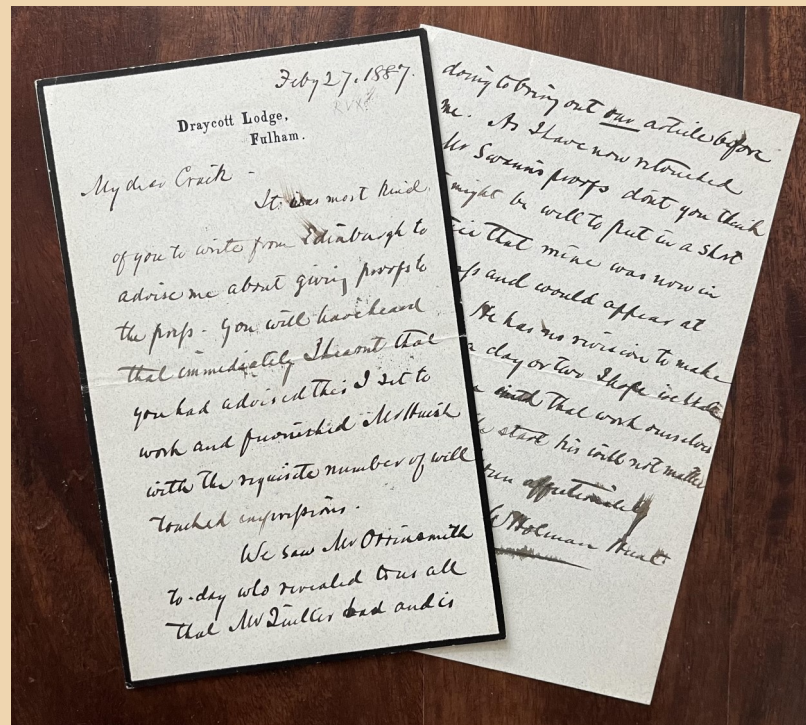 Feby 27. 1887.
Draycott Lodge,
Fulham.
My dear Craik -
It was most kind
of you to write from Edinburgh to
advise me about giving proofs to
the profs - You will have heard
that immediately I learnt that
you had advised this I set to
work and furnished Mr Huish
with the requisite number of well
touched impressions.
We saw Mr Orrinsmith
to-day who revealed to us all
that Mr Quilter had and is
doing to bring out our article before
me. As I have now retouched
Mr Swain's proofs dont you think
might be well to put in a short
that mine was now in
and would appear at
He has no revision to make
day or two I hope
that work ourselves
start his will not matter
affectionately
W Holman Hunt